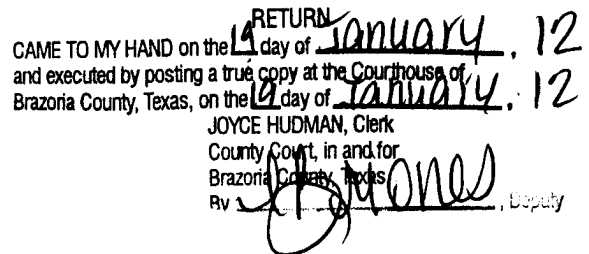 RETURN
CAME TO MY HAND on the 19 day of January, 12
and executed by posting a true copy at the Courthouse of
Brazoria County, Texas, on the 19 day of January, 12
JOYCE HUDMAN, Clerk
County Court, in and for
Brazoria County, Texas
By , Deputy